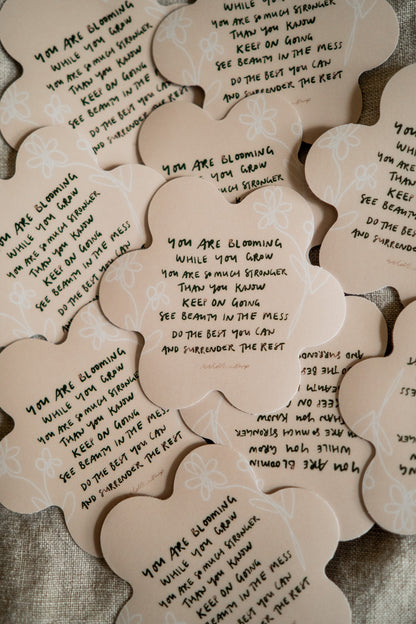 YOU ARE BLOOMING
WHILE YOU GROW
YOU ARE SO MUCH STRONGER
THAN YOU KNOW
KEEP ON GOING
SEE BEAUTY IN THE MESS
DO THE BEST YOU CAN
AND SURRENDER
YOU ARE SO MUCH STRONGER
THAN YOU KNOW
KEEP ON GOING
SEE BEAUTY IN THE MESS
DO THE BEST YOU CAN
AND SURRENDER THE REST
YOU ARE BLOOMING
WHILE YOU GROW
YOU ARE
WHILE YOU
YOU ARE SO MUCH
THAN YOU
KEEP ON
SEE BEAUTY IN
DO THE BEST
AND SURRENDER
YOU ARE BLOOMING
WHILE YOU GROW
YOU ARE SO MUCH STRONGER
THAN YOU KNOW
KEEP ON GOING
SEE BEAUTY IN THE
DO THE BEST YOU
AND SURRENDER
YOU ARE BLOOMING
WHILE YOU GROW
YOU ARE SO MUCH STRONGER
THAN YOU KNOW
KEEP ON GOING
SEE BEAUTY IN THE MESS
DO THE BEST YOU CAN
AND SURRENDER THE REST
YOU ARE BLOOMING
WHILE YOU GROW
YOU ARE SO MUCH STRONGER
THAN YOU KNOW
KEEP ON GOING
SEE BEAUTY IN THE MESS
DO THE BEST YOU CAN
AND SURRENDER THE REST
YOU ARE BLOOMING
WHILE YOU GROW
YOU ARE SO MUCH STRONGER
THAN YOU KNOW
KEEP ON
BEAUTY IN THE MESS
DO THE BEST YOU CAN
AND SURRENDER THE REST
YOU ARE BLOOMING
WHILE YOU GROW
YOU ARE SO MUCH STRONGER
THAN YOU KNOW
KEEP ON GOING
SEE BEAUTY IN THE MESS
DO THE BEST YOU CAN
AND SURRENDER THE REST